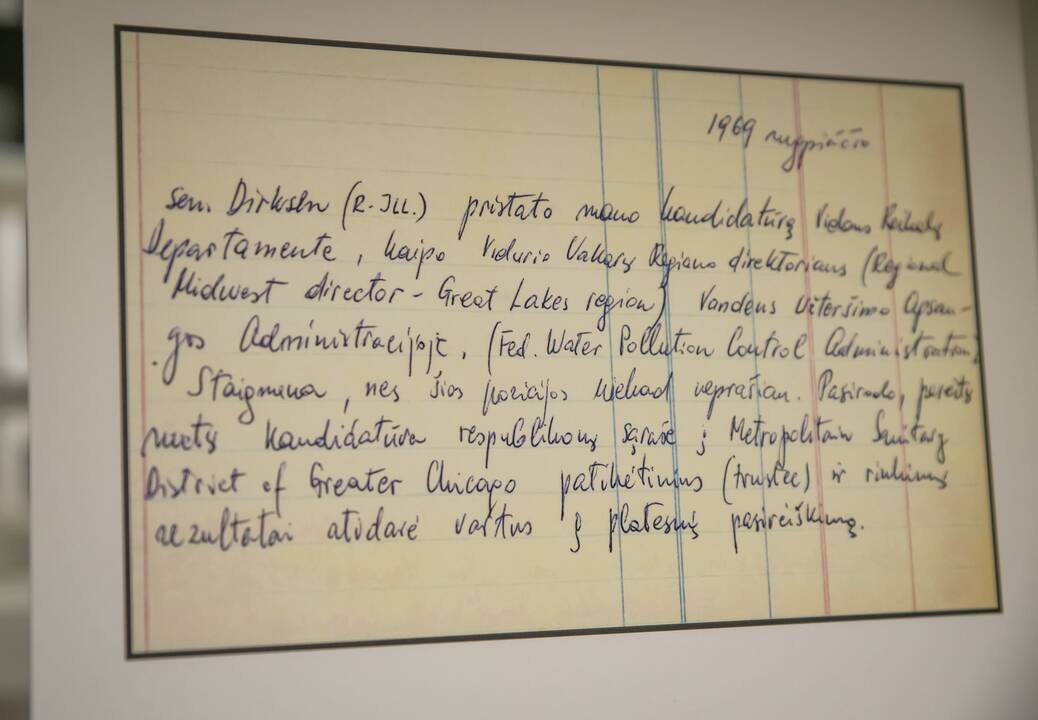 1969 rugpiūčio
sen. Dirksen (R-Ill.) pristato mano kandidatūrą Vidaus Reikalų
Departamente, kaipo Vidurio Vakarų Regiono direktoriaus (Regional
Midwest director - Great Lakes region) Vandens Užteršimo Apsau-
gos Administracijoje, (Fed. Water Pollution Control Administration)
Staigmena, nes šios pozicijos niekad neprašiau. Pasirodo, pereitų
metų kandidatūra respublikonų sąraše į Metropolitain Sanitary
District of Greater Chicago patikėtinius (trustee) ir rinkimų
rezultatai atidarė vartus į platesnį pasireiškimą.